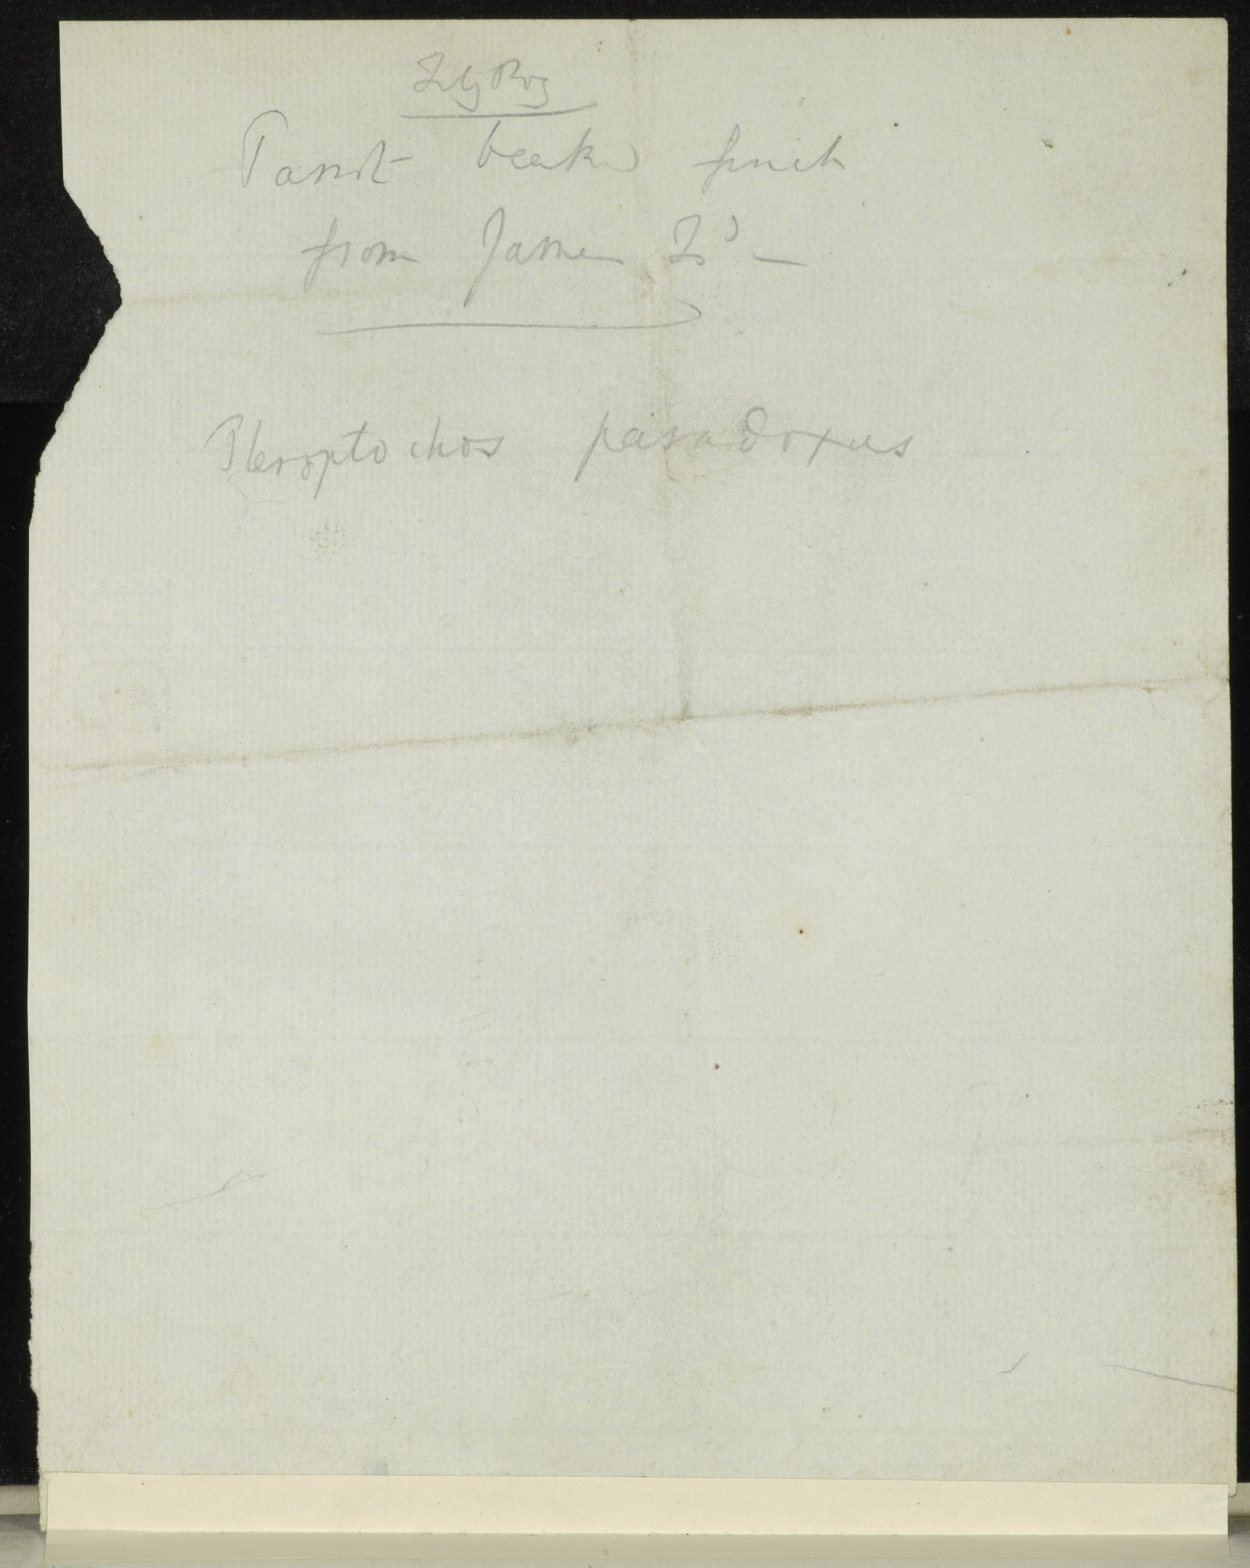 Parrot beaked finch
from James Is^d —
Pteroptochos paradoxus